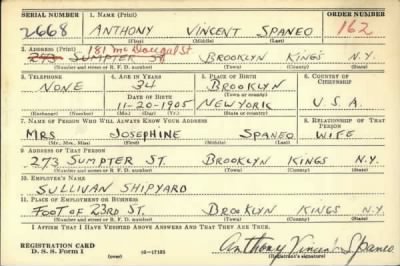 SERIAL NUMBER 1. NAME (Print) ORDER NUMBER
2668 ANTHONY VINCENT SPANEO 162
(First) (Middle) (Last)
2. ADDRESS (Print) 181 McDougal St
273 SUMPTER ST. BROOKLYN KINGS N.Y.
(Number and street or R. F. D. number) (Town) (County) (State)
3. TELEPHONE 4. AGE IN YEARS 5. PLACE OF BIRTH 6. COUNTRY OF CITIZENSHIP
NONE 34 BROOKLYN
DATE OF BIRTH (Town or county)
11-20-1905 NEW YORK U.S.A.
(Exchange) (Number) (Mo.) (Day) (Yr.) (State or country)
7. NAME OF PERSON WHO WILL ALWAYS KNOW YOUR ADDRESS 8. RELATIONSHIP OF THAT PERSON
MRS JOSEPHINE SPANEO WIFE
(Mr., Mrs., Miss) (First) (Middle) (Last)
9. ADDRESS OF THAT PERSON
273 SUMPTER ST. BROOKLYN KINGS N.Y.
(Number and street or R. F. D. number) (Town) (County) (State)
10. EMPLOYER'S NAME
SULLIVAN SHIPYARD
11. PLACE OF EMPLOYMENT OR BUSINESS
FOOT OF 23RD ST. BROOKLYN KINGS N.Y.
(Number and street or R. F. D. number) (Town) (County) (State)
I AFFIRM THAT I HAVE VERIFIED ABOVE ANSWERS AND THAT THEY ARE TRUE.
REGISTRATION CARD Anthony Vincent Spaneo
D. S. S. FORM 1 (over) 16-17105 (Registrant's signature)